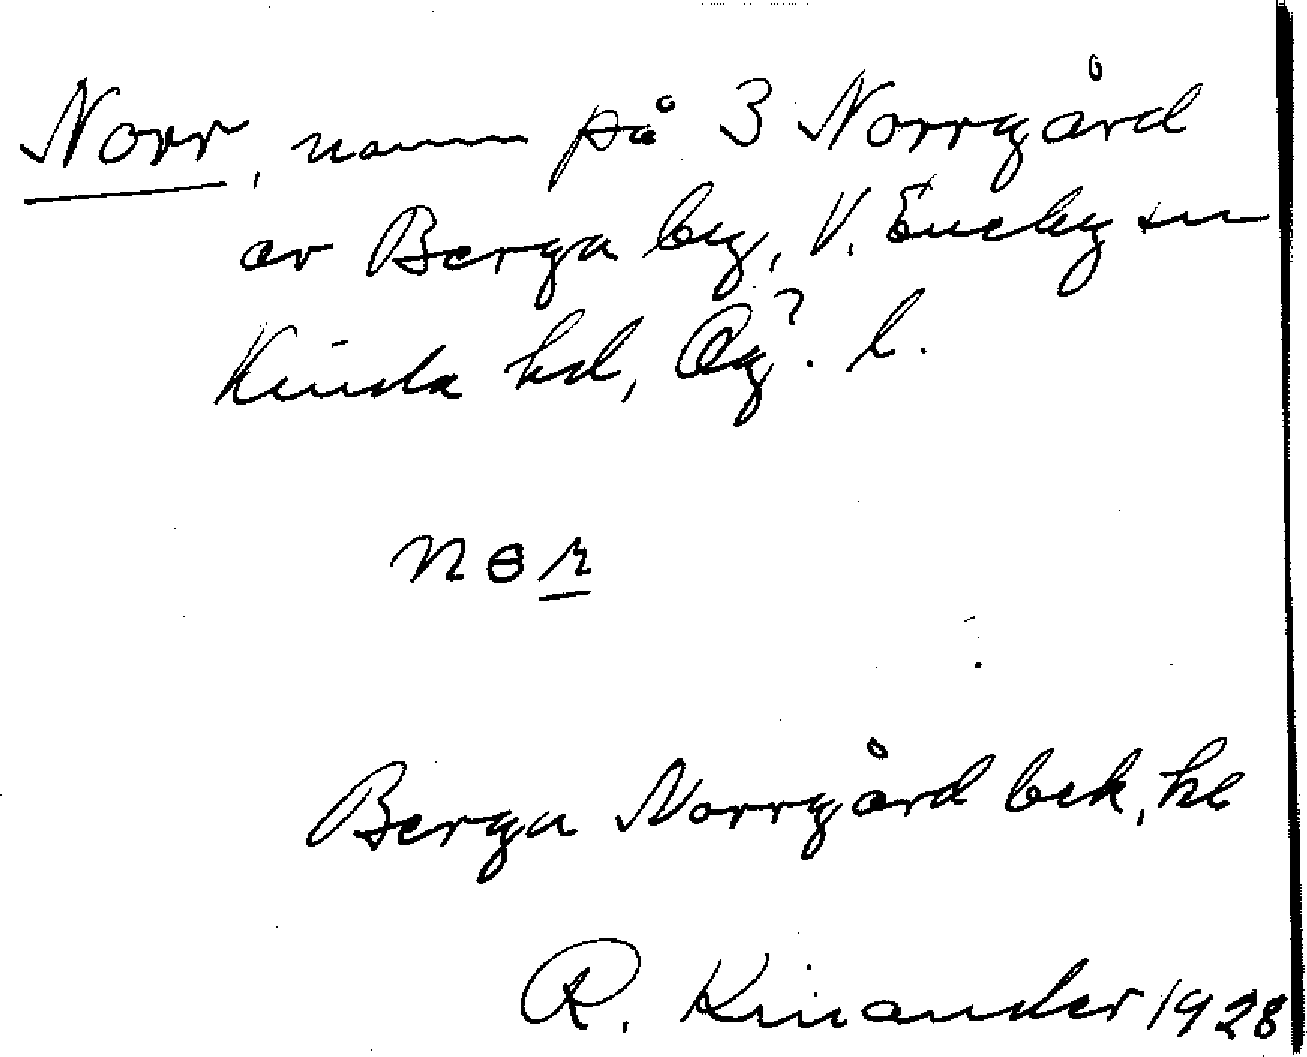 Norr, namn på 3 Norrgård
av Berga by, V. Eneby sn
Kinda hd, Ög. l.
nɵr
Berga Norrgård bek, hl
R. Kinander 1928